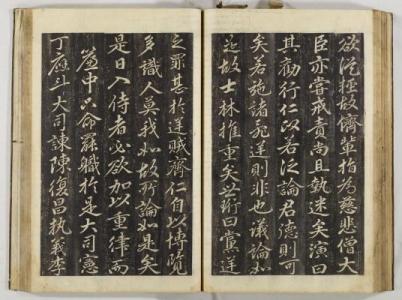 欲從極故儕輩指為慈悲僧大
臣亦嘗戒責尚且執迷矣演曰
其勸行仁以若泛論君德則可
矣若施諸兇逆則非也議論如
故士林推重矣世珩曰黨逆
之罪甚於逆賊齊仁自以博覽
多識人莫我如故所論如是矣
是日入侍者必欲加以重律而
筵中只命罷職於是大司憲
丁應斗大司諫陳復昌執義李